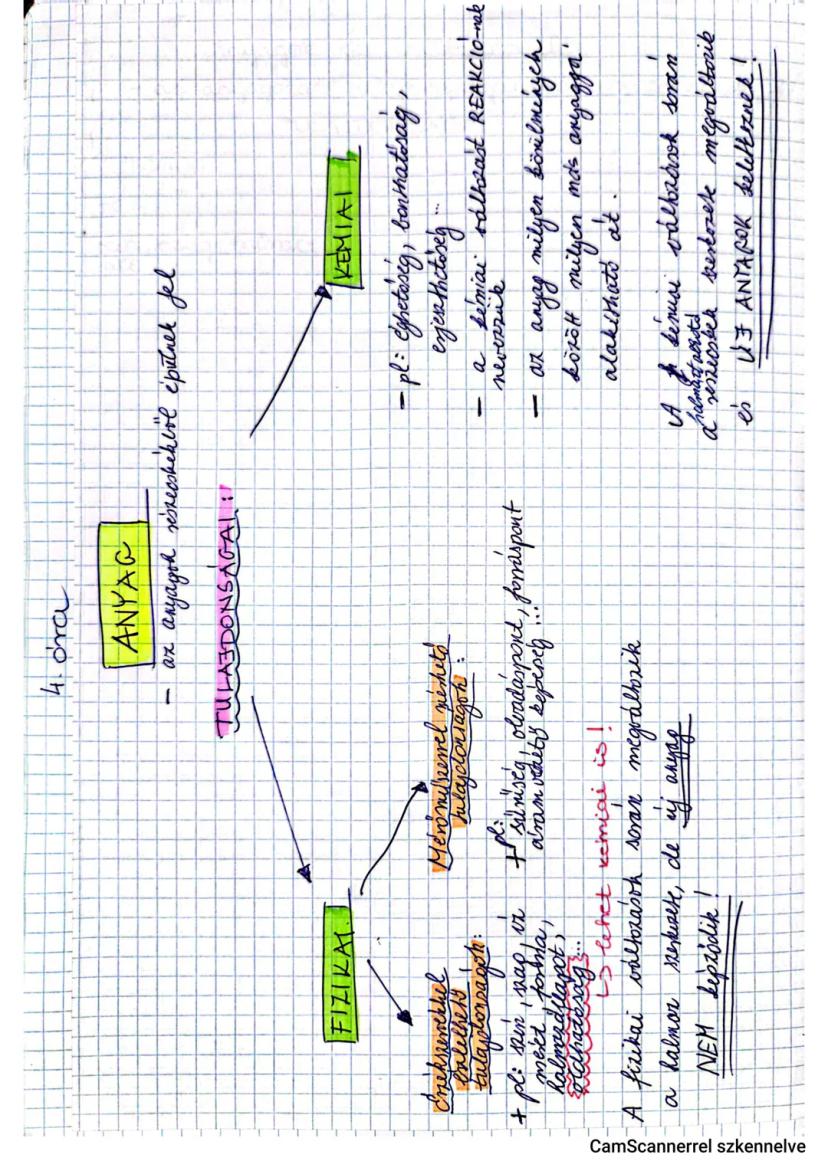 4. óra
ANYAG
- az anyagok részecskékből épülnek fel
TULAJDONSÁGAI:
FIZIKAI
Érzékszervekkel
észlelhető
tulajdonságok:
+ pl: szín, szag, íz
méret, forma,
halmazállapot,
oldhatóság...
↳ lehet kémiai is!
Mérőműszerrel mérhető
tulajdonságok:
+ pl:
sűrűség, olvadáspont, forráspont
áramvezető képesség...
A fizikai változások során megváltozik
a halmaz szerkezete, de új anyag
NEM képződik!
KÉMIAI
- pl: éghetőség, bonthatóság,
erjeszthetőség...
- a kémiai változást REAKCIÓ-nak
nevezzük
- az anyag milyen körülmények
között milyen más anyaggá
alakítható át.
A kémiai változások során
a halmazt alkotó
részecskék szerkezete megváltozik
és ÚJ ANYAGOK keletkeznek!
CamScannerrel szkennelve